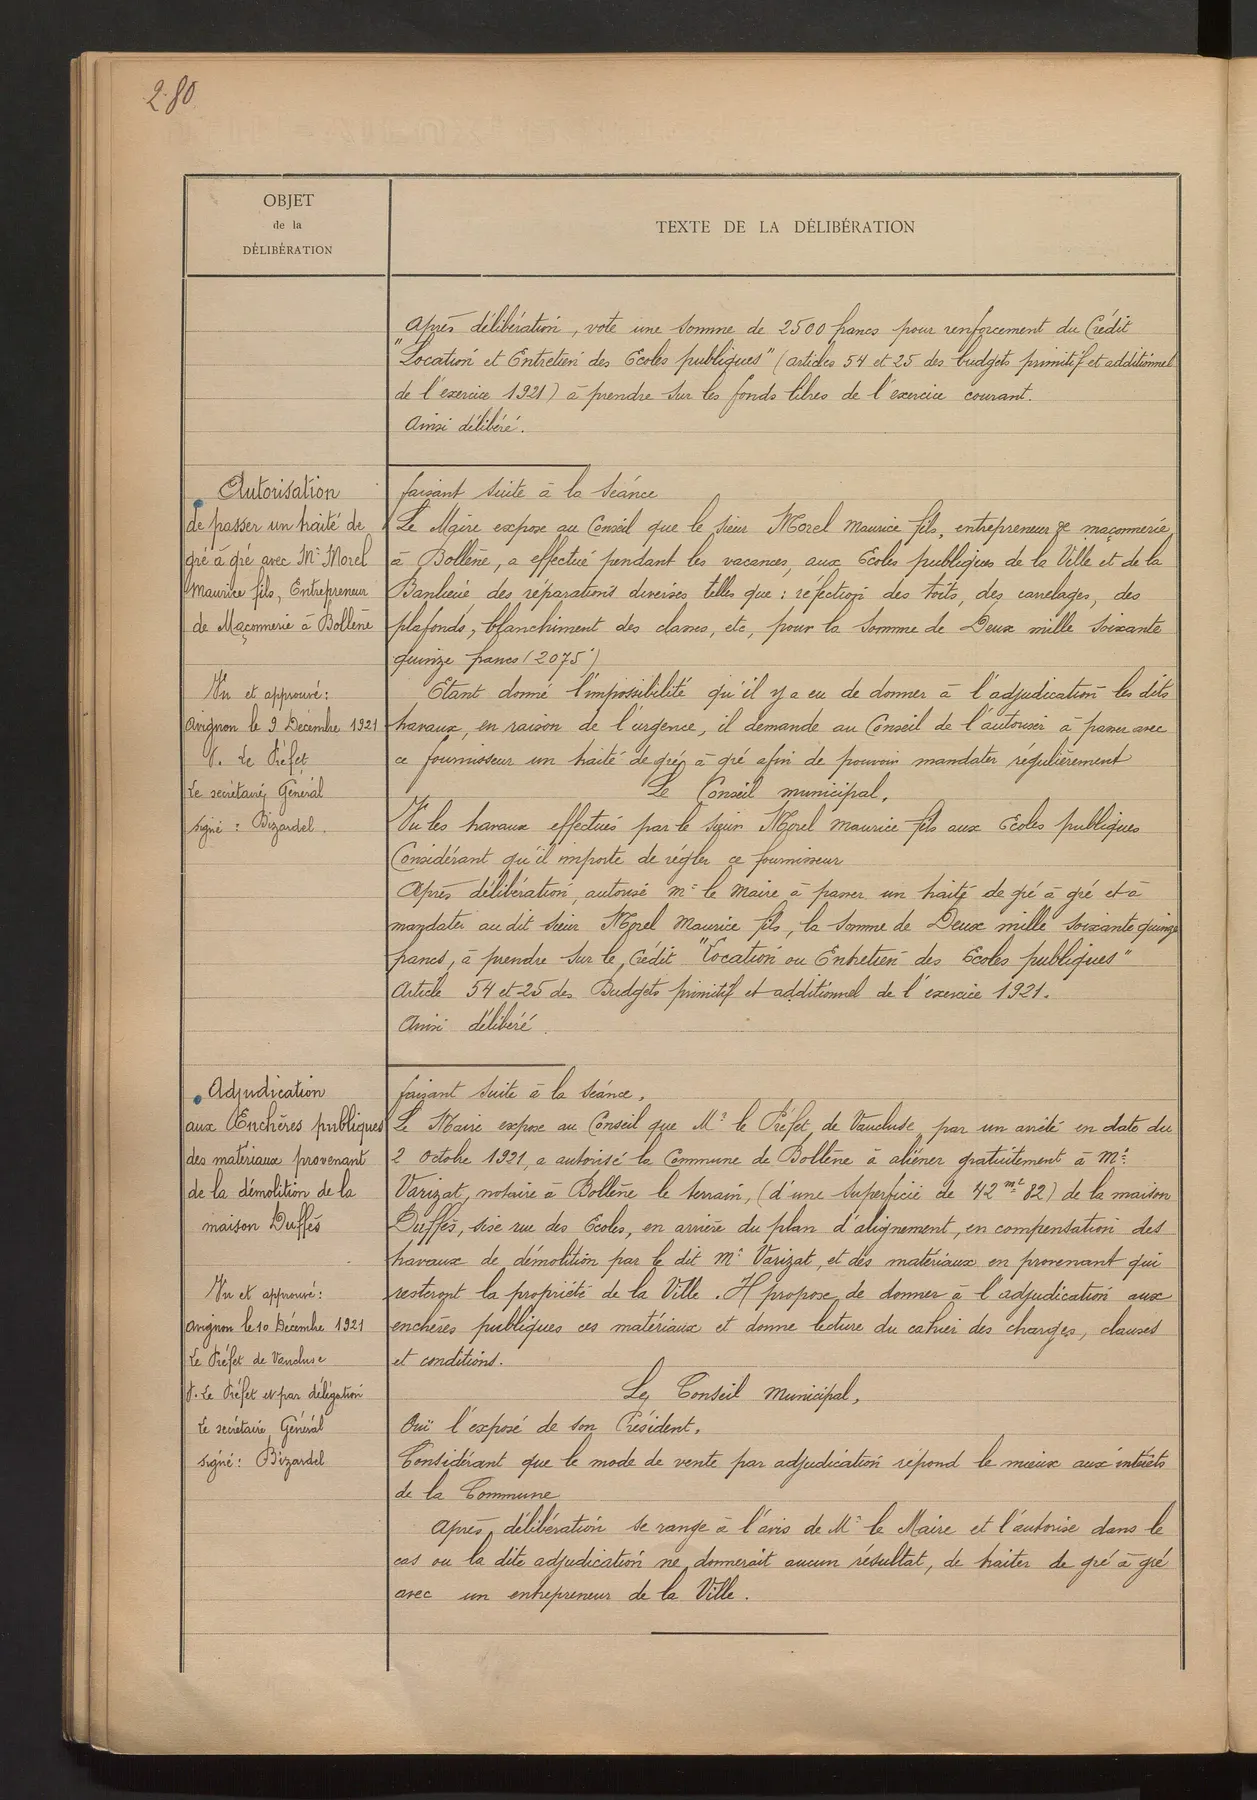 280
OBJET
de la
DÉLIBÉRATION
TEXTE DE LA DÉLIBÉRATION
Après délibération, vote une somme de 2500 francs pour renforcement du Crédit
"Location et Entretien des Ecoles publiques" (articles 54 et 25 des budgets primitif et additionnel
de l'exercice 1921) à prendre sur les fonds libres de l'exercice courant.
Ainsi délibéré.
Autorisation
de passer un traité de
gré à gré avec Mr Morel
Maurice fils, Entrepreneur
de Maçonnerie à Bollène
Vu et approuvé:
Avignon le 9 Décembre 1921
P. Le Préfet
Le secrétaire Général
signé: Bizardel.
faisant suite à la séance
Le Maire expose au Conseil que le sieur Morel Maurice fils, entrepreneur de maçonnerie
à Bollène, a effectué pendant les vacances, aux Ecoles publiques de la Ville et de la
Banlieue des réparations diverses telles que: réfection des toits, des carrelages, des
plafonds, blanchiment des classes, etc, pour la somme de Deux mille soixante
quinze francs (2075f)
Etant donné l'impossibilité qu'il y a eu de donner à l'adjudication les dits
travaux, en raison de l'urgence, il demande au Conseil de l'autoriser à passer avec
ce fournisseur un traité de gré à gré afin de pouvoir mandater régulièrement
Le Conseil municipal,
Vu les travaux effectués par le sieur Morel Maurice fils aux Ecoles publiques
Considérant qu'il importe de régler ce fournisseur
Après délibération, autorise Mr le Maire à passer un traité de gré à gré et à
mandater au dit sieur Morel Maurice fils, la somme de Deux mille soixante quinze
francs, à prendre sur le crédit "Location ou Entretien des Ecoles publiques"
Article 54 et 25 des Budgets primitif et additionnel de l'exercice 1921.
Ainsi délibéré.
Adjudication
aux Enchères publiques
des matériaux provenant
de la démolition de la
maison Duffès
Vu et approuvé:
Avignon le 10 Décembre 1921
Le Préfet de Vaucluse
P. Le Préfet et par délégation
Le secrétaire Général
signé: Bizardel
faisant suite à la séance,
Le Maire expose au Conseil que Mr le Préfet de Vaucluse, par un arrêté en date du
2 octobre 1921, a autorisé la Commune de Bollène à aliéner gratuitement à Mr
Varizat, notaire à Bollène le terrain, (d'une superficie de 42 mt 82) de la maison
Duffès, sise rue des Ecoles, en arrière du plan d'alignement, en compensation des
travaux de démolition par le dit Mr Varizat, et des matériaux en provenant qui
resteront la propriété de la Ville. Il propose de donner à l'adjudication aux
enchères publiques ces matériaux et donne lecture du cahier des charges, clauses
et conditions.
Le Conseil municipal,
Ouï l'exposé de son Président,
Considérant que le mode de vente par adjudication répond le mieux aux intérêts
de la Commune
Après délibération se range à l'avis de Mr le Maire et l'autorise dans le
cas ou la dite adjudication ne donnerait aucun résultat, de traiter de gré à gré
avec un entrepreneur de la Ville.